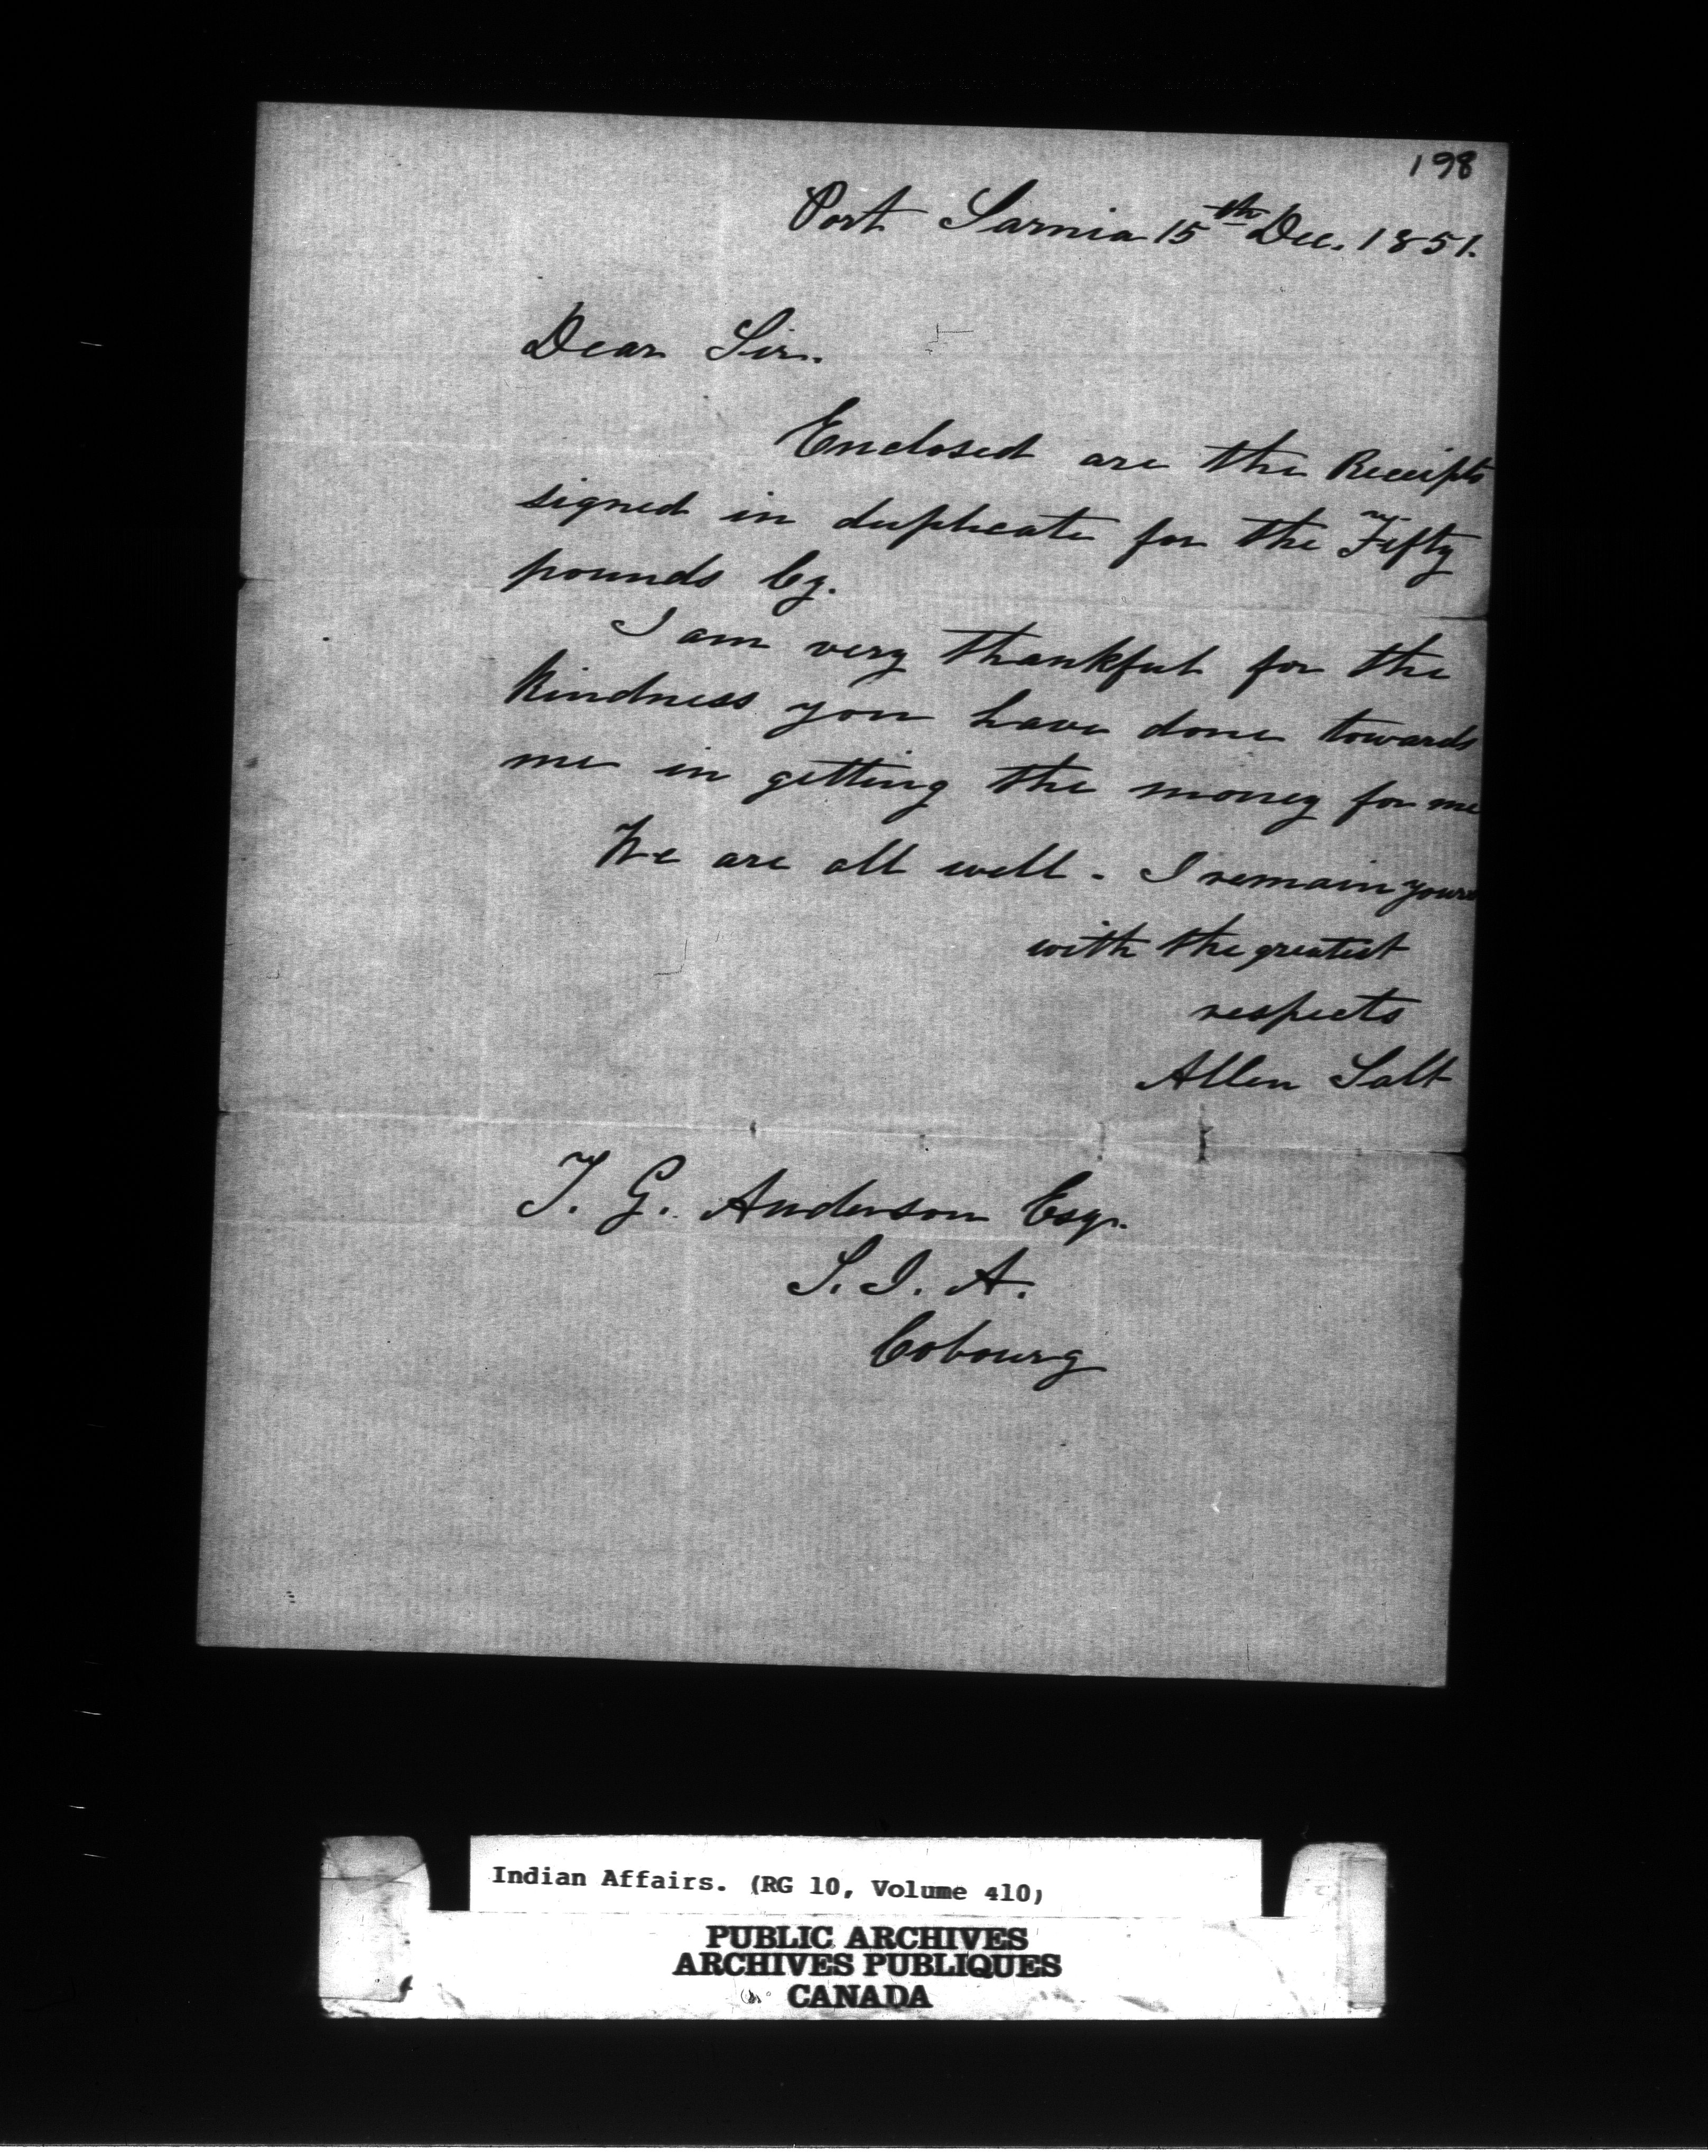 198
Port Sarnia 15th Dec. 1851.
Dear Sir.
Enclosed are the Receipts
signed in duplicate for the Fifty
pounds Cy.
I am very thankful for the
kindness you have done towards
me in getting the money for me
We are all well - I remain yours
with the greatest
respects
Allen Salt
T. G. Anderson Esqr.
S. I. A.
Cobourg
Indian Affairs. (RG 10, Volume 410)
PUBLIC ARCHIVES
ARCHIVES PUBLIQUES
CANADA